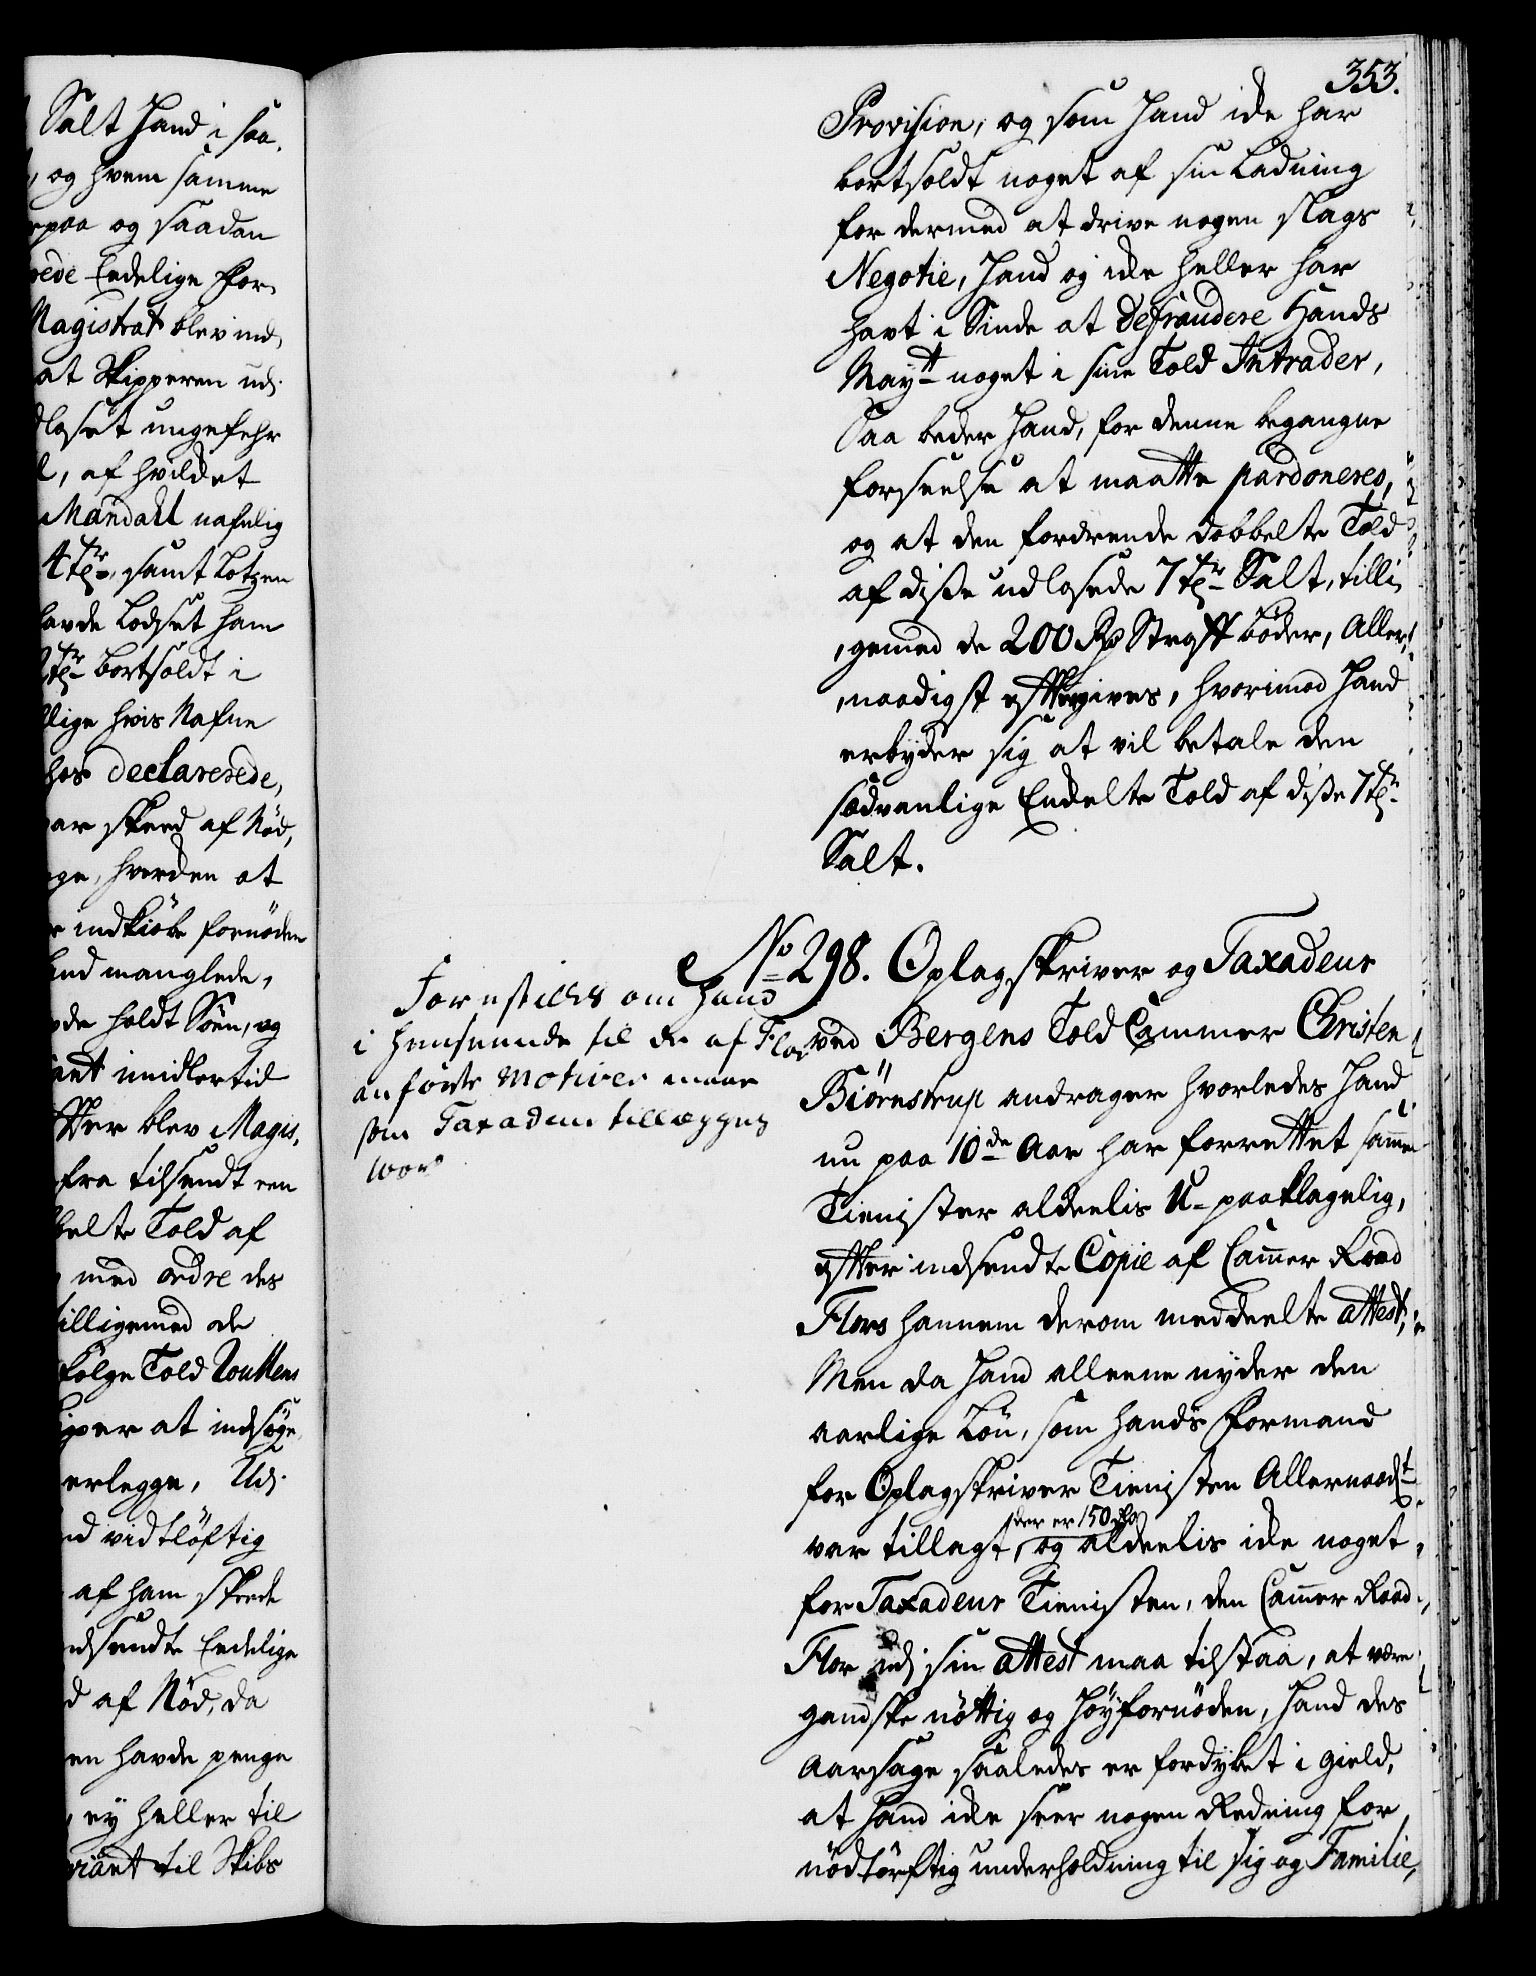 Salt hand i saa-
, og hvem samme
paa og saadan
rede Endelige for-
Magistrat blev ind-
at Skipperen ud-
loset ungefehr
, af hvilcket
Mandatt nafnlig
4 tdr, samt Lotzen
havde Lodset ham
2 tdr bortsoldt i
lige hvis Nafne
hos declarerede,
var skeed af Nød,
ge, hverden at
indkiøbe fornøden
and manglede,
de holdt Søen, og
ant imidlertid
Her blev Magis-
fra tilsendt een
belte Told af
med ordre des
tilligemed de
følge Told Roullens
per at indsøge
erlegge, Ud-
nd vidtløftig
af ham skeede
dsendte Endelige
d af Nød, da
en havde penge
, ey heller til
viant til Skibs
353.
Provision, og som hand icke har
bortsoldt noget af sin Ladning
for dermed at drive nogen slags
Negotie, hand og icke heller har
havt i Sinde at defraudere Hands
Maytt noget i sine Told Intrader,
Saa beder hand, for denne begangne
forseelse at maatte pardoneres,
og at den fordrende dobbelte Told
af disse udlosede 7 tdr Salt, tilli-
gemed de 200 Rdr Straff bøder, Aller-
naadigst efftergives, hvorimod hand
erbyder sig at vil betale den
sædvanlige Enckelte Told af disse 7 tdr
Salt.
No 298. Oplagskriver og Taxadeur
ved Bergens Told Cammer Christen
Biørnstrup andrager hvorledes hand
nu paa 10de Aar har forrettet samme
Tienister aldeelis U-paaklagelig,
effter indsendte Copie af Cammer Raad
Flors hannem derom meddeelte attest,
Men da hand alleene nyder den
aarlige Løn, som hands Formand
for Oplagskriver Tienisten Allernaadst
der er 150 Rdr
var tillagt, og aldeelis icke noget
for Taxadeur Tienisten, den Cammer Raad
Flor udj sin attest maa tilstaa, at være
gandske nøttig og høyfornøden, hand des
Aarsage saaledes er fordybet i gield,
at hand icke seer nogen Redning for
nødtørftig underholdning til sig og Familie,
Forestilles om hand
i henseende til de af Flor
anførte Motiver maae
som Taxadeur tillægges